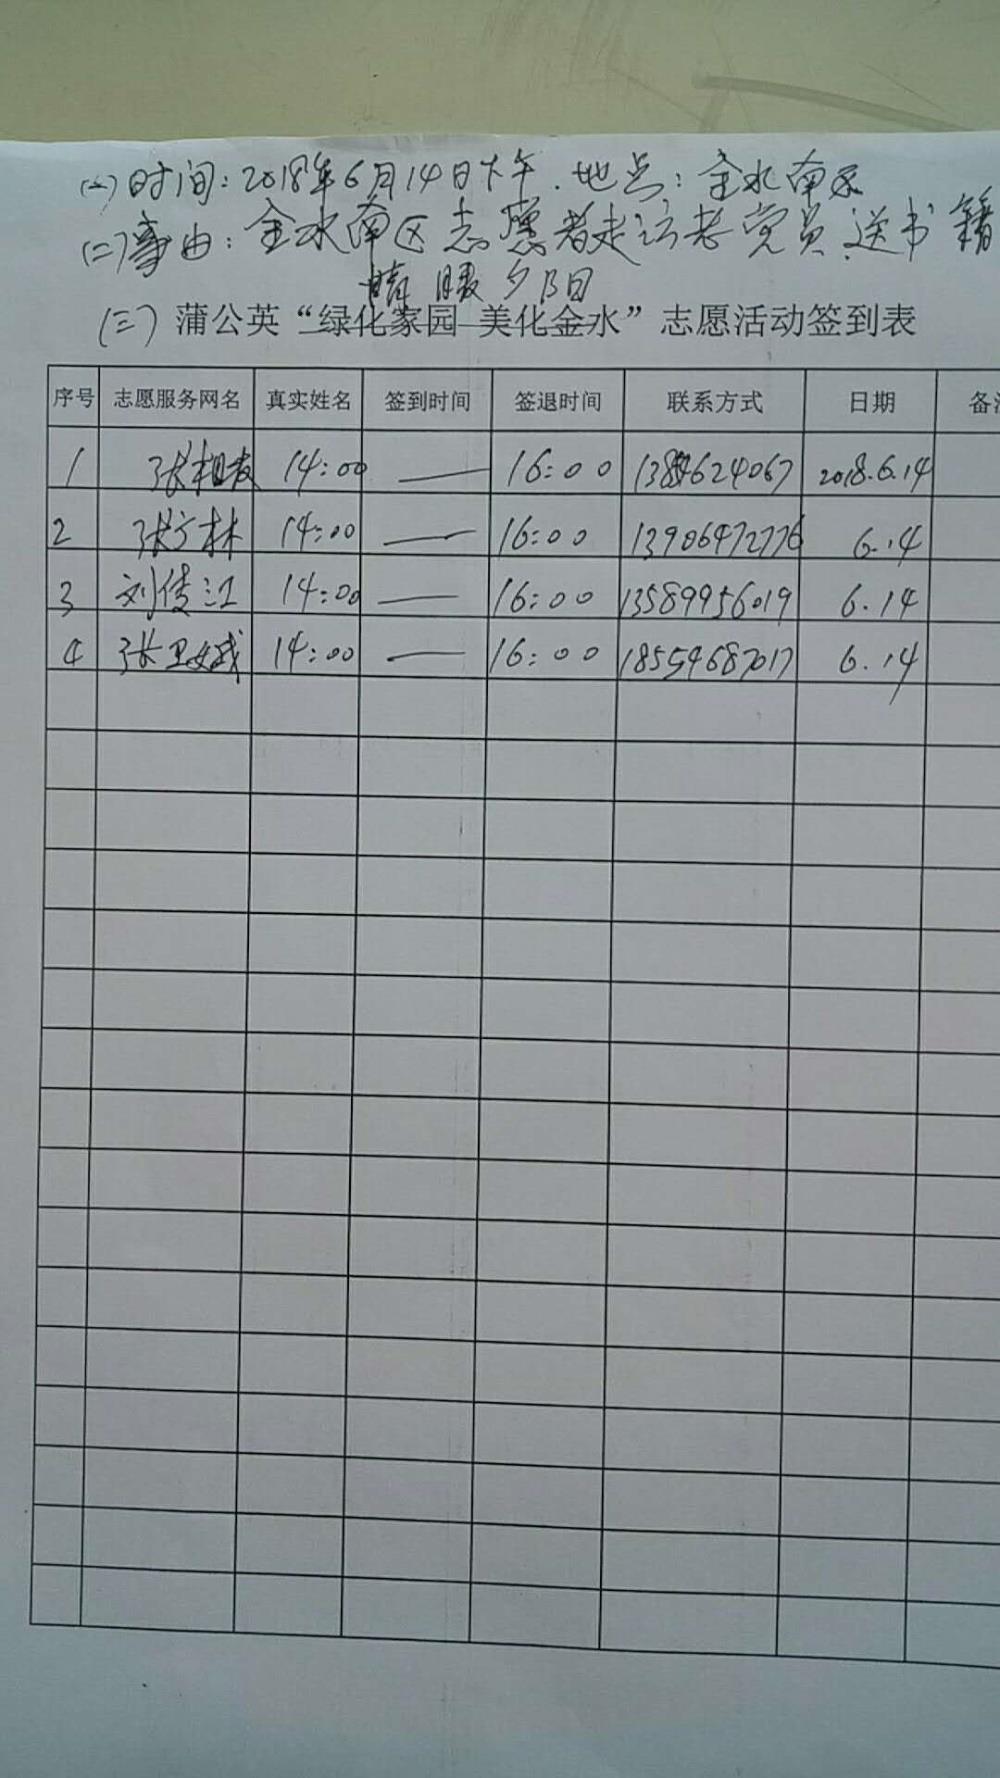 (一)时间:2018年6月14日下午.地点:金水南区
(二)事由:金水南区志愿者走访老党员.送书籍
情暖夕阳
(三)蒲公英“绿化家园 美化金水”志愿活动签到表
序号 志愿服务网名 真实姓名 签到时间 签退时间 联系方式 日期 备
1 张相友 14:00 — 16:00 13854624067 2018.6.14
2 张方林 14:00 — 16:00 13906472776 6.14
3 刘传江 14:00 — 16:00 13589956019 6.14
4 张卫 14:00 — 16:00 18554687017 6.14